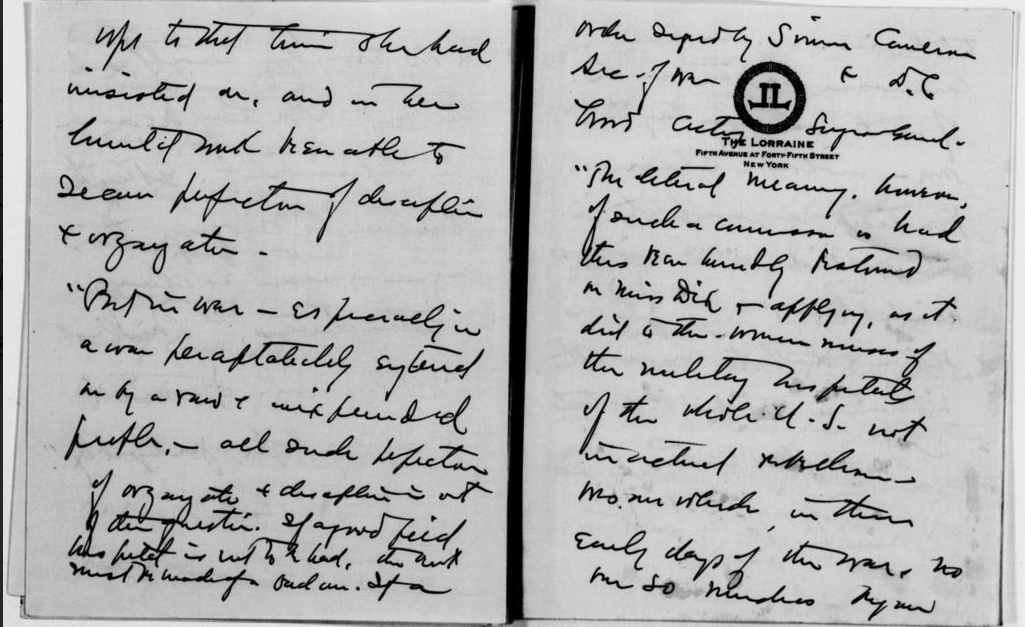 up to that time she had
insisted on, and in her
had been able to
secure perfection of discipline
& organization -
"But in war – especially in
a war precipitately entered
on by a raw & inexperienced
people, – all such perfection
of organization & discipline is out
of the question. If a good field
hospital is not to be had, the best
must be made of a bad one. If a
order signed by Simon Cameron
Sec. of War & D.C.
Wood Acting Surg-Genl.
JL
THE LORRAINE
FIFTH AVENUE AT FORTY-FIFTH STREET
NEW YORK
"The literal meaning, however,
of such a commission as had
thus been hurriedly bestowed
on Miss Dix – applying, as it
did to the women nurses of
the military hospitals
of the whole U.S. not
in actual rebellion –
was one which, in those
early days of the war, no
one so much as began